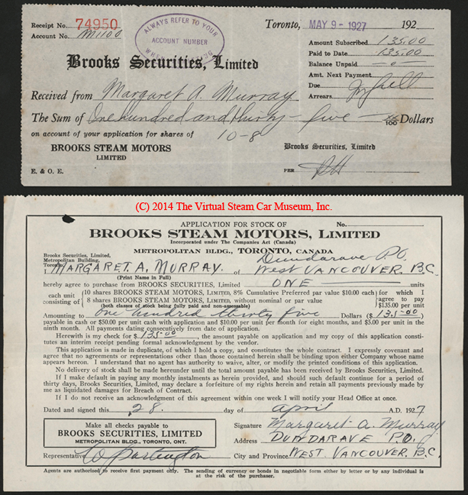 Receipt No. 74950
Account No. M1100
ALWAYS REFER TO YOUR
ACCOUNT NUMBER
Toronto, MAY 9 - 1927 192
Amount Subscribed 135.00
Paid to Date 135.00
Balance Unpaid -0-
Amt. Next Payment
Due In full
Arrears
Brooks Securities, Limited
Received from Margaret A. Murray
The Sum of One hundred and thirty - five /100 Dollars
on account of your application for shares of 10-8
BROOKS STEAM MOTORS
LIMITED
Brooks Securities, Limited
E. & O. E.
Per
(C) 2014 The Virtual Steam Car Museum, Inc.
APPLICATION FOR STOCK OF
No.
BROOKS STEAM MOTORS, LIMITED
Incorporated under The Companies Act (Canada)
METROPOLITAN BLDG., TORONTO, CANADA
Brooks Securities, Limited,
Metropolitan Building,
Toronto.
Dundarave P.O.
I, MARGARET A. MURRAY of West VANCOUVER, B.C.
(Print Name in Full)
hereby agree to purchase from BROOKS SECURITIES, Limited ONE units
each unit consisting of 10 shares BROOKS STEAM MOTORS, LIMITED, 8% Cumulative Preferred par value $10.00 each
8 shares BROOKS STEAM MOTORS, LIMITED, without nominal or par value
(both classes of stock being fully paid and non-assessable)
for which I agree to pay $135.00 per unit
Amounting to one hundred thirty five Dollars ($ 135.00)
payable in cash or $50.00 per unit cash with application and $10.00 per unit per month for eight months, and $5.00 per unit in the
ninth month. All payments dating consecutively from date of application.
Herewith is my check for $ 135.00, the amount payable on my copy of this application constitutes
an interim receipt pending formal acknowledgment by the vendor.
This application is made in duplicate, of which I hold a copy, and constitutes the whole contract. I expressly covenant and
agree that no agreements or representations other than those contained herein shall be binding upon either Company whose name
appears herein. I understand that no Agent has authority to waive, alter, or modify the printed conditions of this application.
No delivery of stock shall be made hereunder until the total amount payable has been received by Brooks Securities, Limited.
If I make default in paying any monthly instalments as herein provided, and should such default continue for a period of
thirty days, Brooks Securities, Limited, may declare a forfeiture of my rights herein and retain all payments previously made by
me as liquidated damages for Breach of Contract.
If I do not receive an acknowledgment of this agreement within one week I will notify your Head Office at once.
Dated and signed this 28 day of April A.D. 1927
Make all checks payable to
BROOKS SECURITIES, LIMITED
METROPOLITAN BLDG., TORONTO, ONT.
Signature Margaret A. Murray
Address DUNDARAVE P.O.
Representative
City and Province WEST VANCOUVER, B.C.
Agents are authorized to receive first payment only. The sending of currency or bonds in negotiable form either by letter or by any individual is
at the risk of the purchaser.